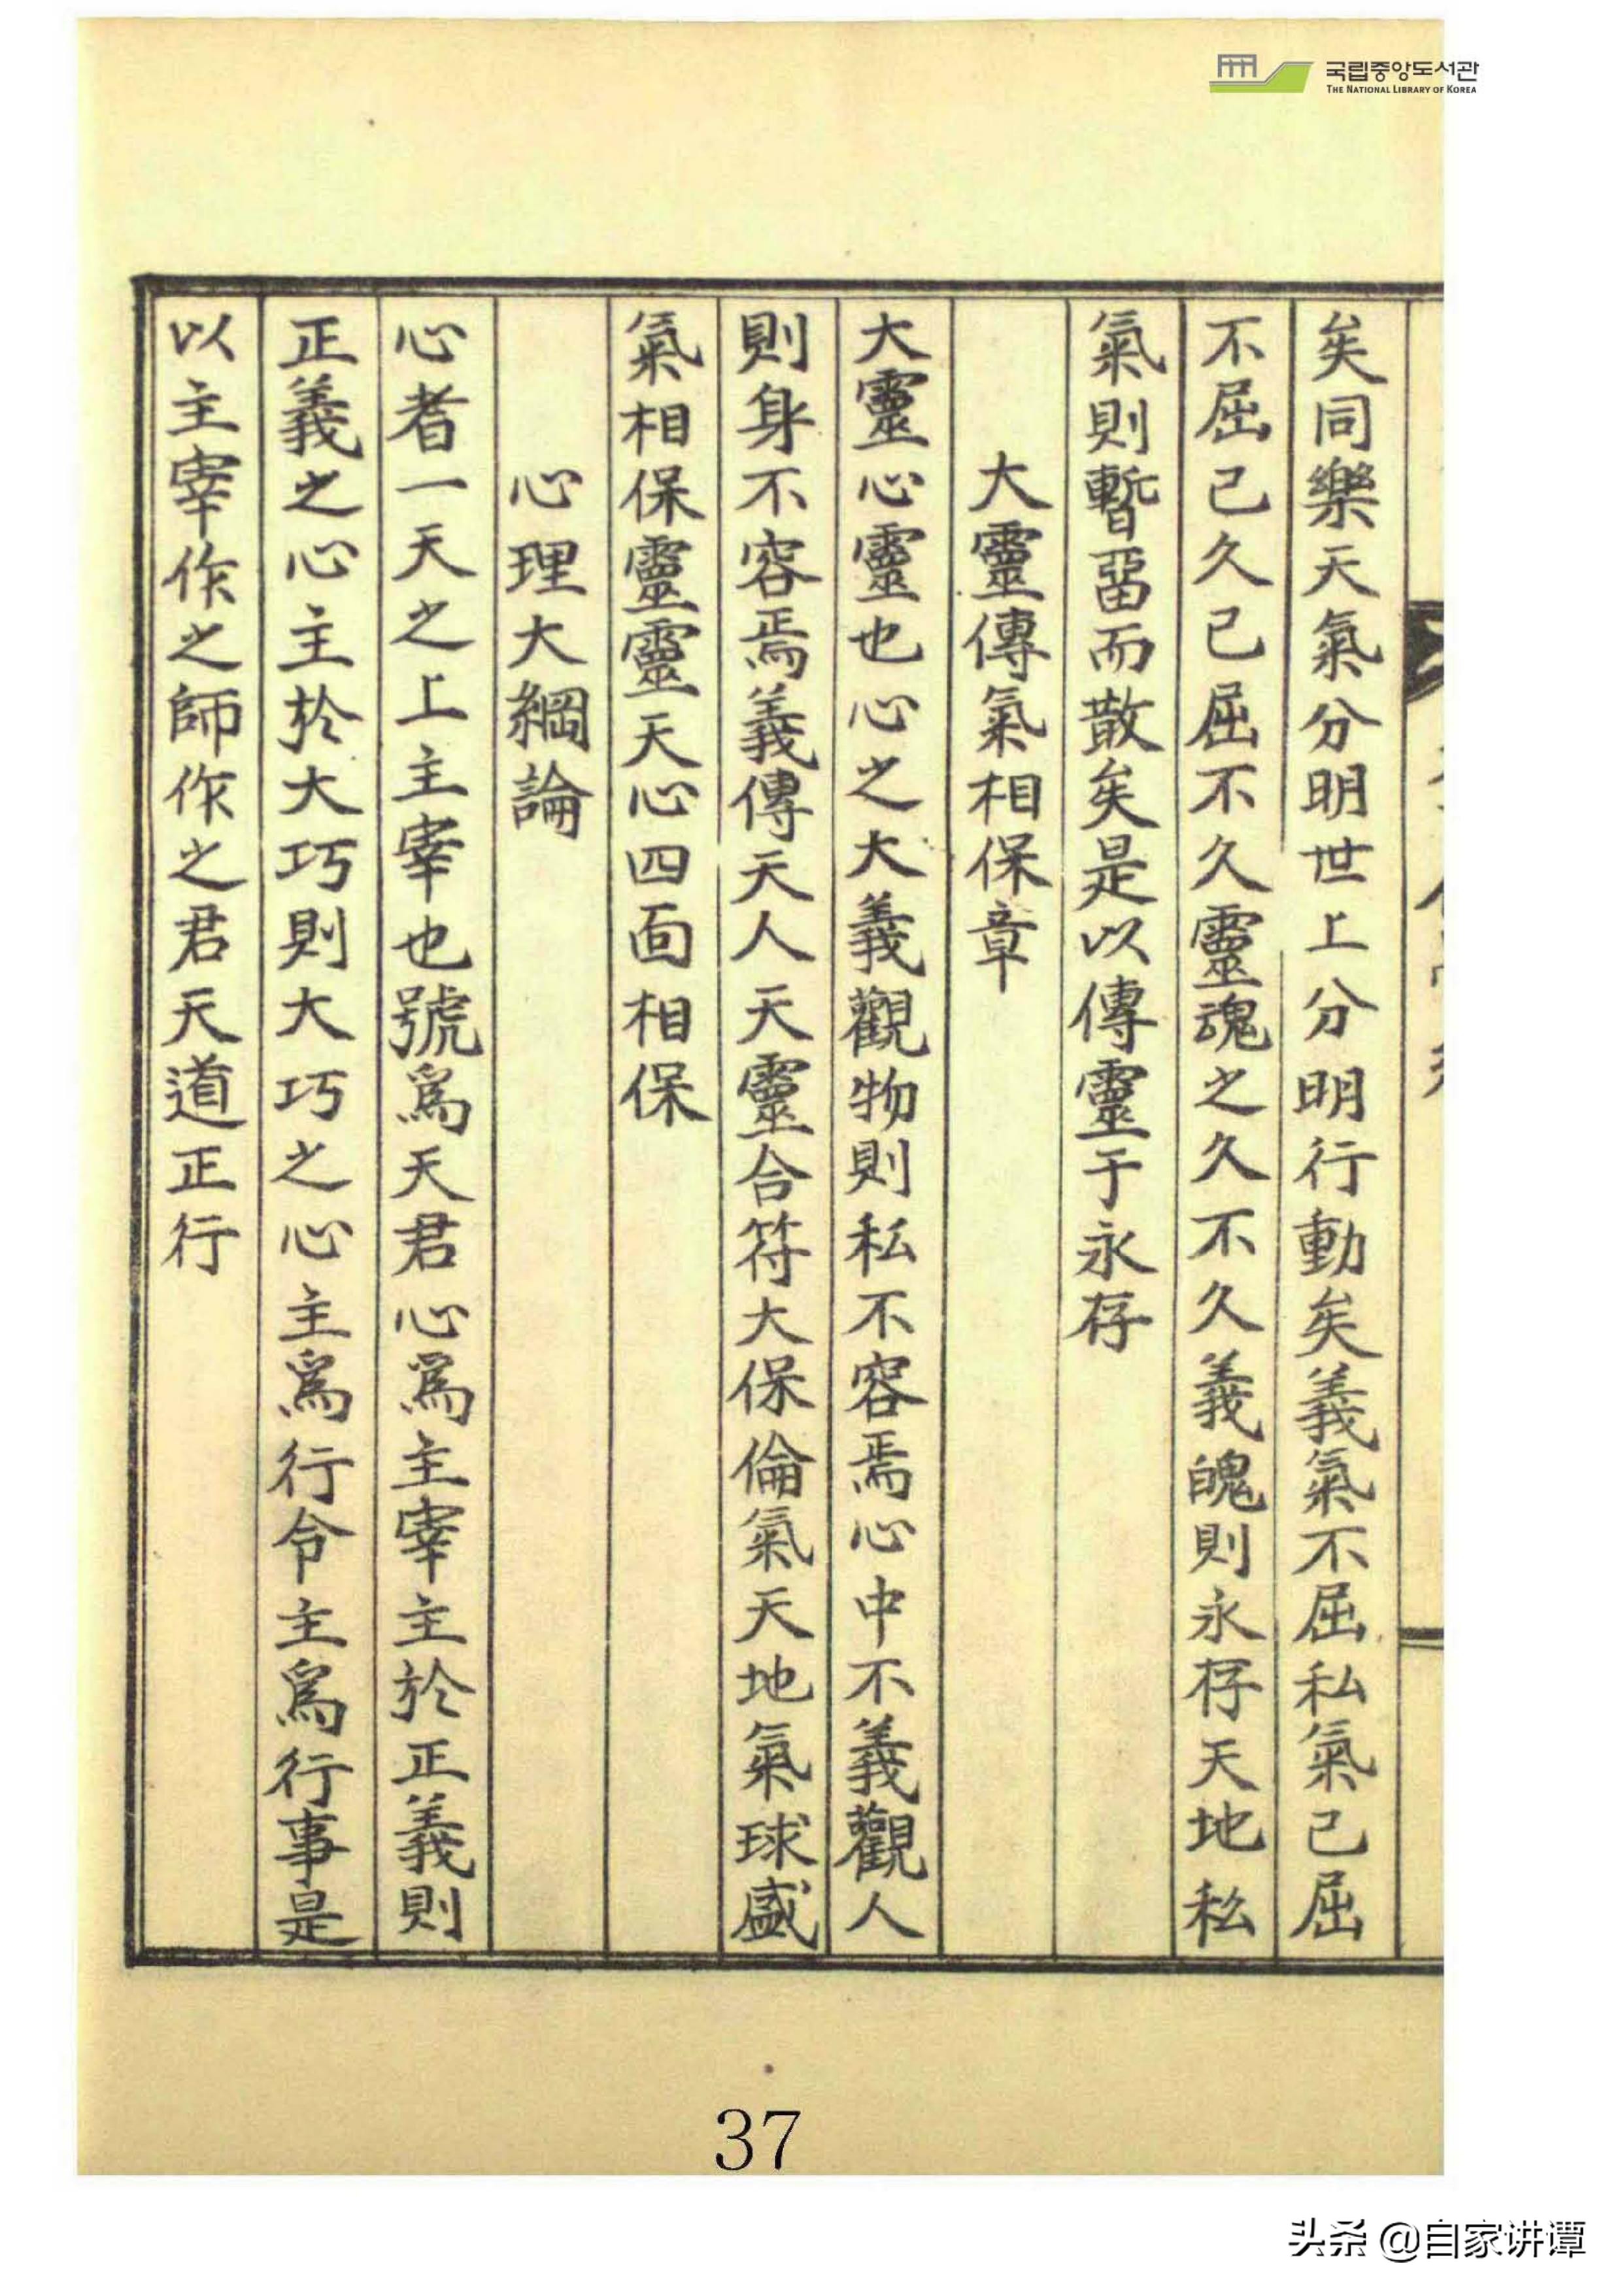 국립중앙도서관
THE NATIONAL LIBRARY OF KOREA
矣同樂天氣分明世上分明行動矣義氣不屈私氣己屈
不屈己久己屈不久靈魂之久不久義魄則永存天地私
氣則暫畱而散矣是以傳靈于永存
大靈傳氣相保章
大靈心靈也心之大義觀物則私不容焉心中不義觀人
則身不容焉義傳天人天靈合符大保倫氣天地氣球盛
氣相保靈靈天心四面相保
心理大綱論
心者一天之上主宰也號爲天君心爲主宰主於正義則
正義之心主於大巧則大巧之心主爲行令主爲行事是
以主宰作之師作之君天道正行
37
头条 @自家讲谭